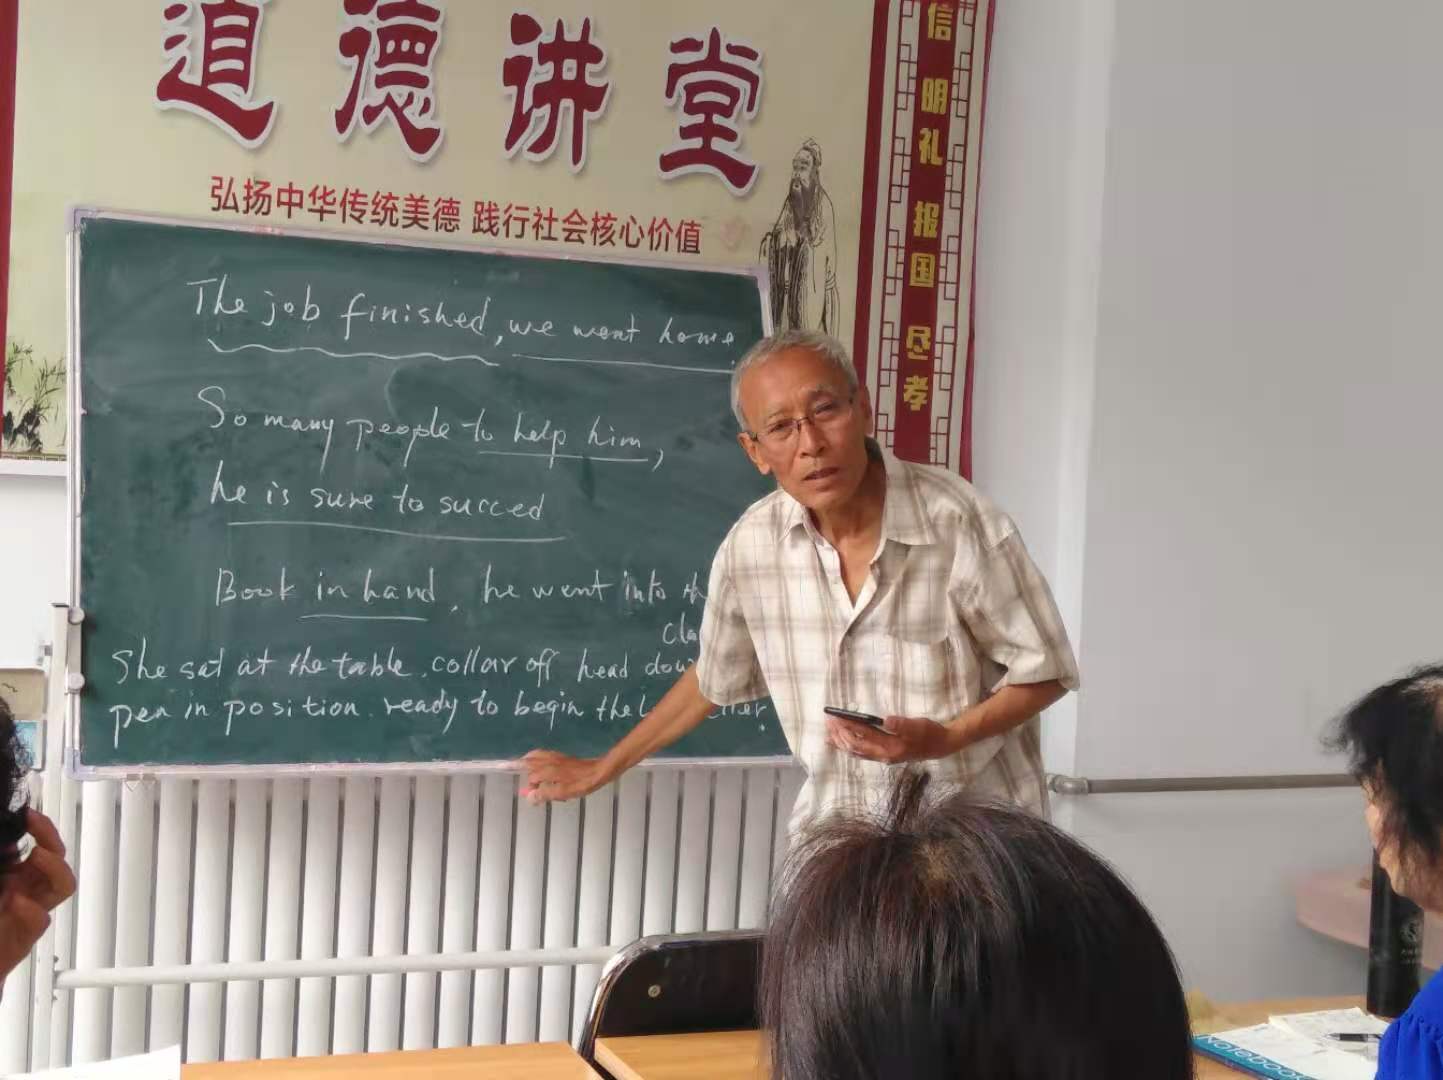 道德讲堂
弘扬中华传统美德 践行社会核心价值
信 明礼 报国 尽孝
The job finished, we went home.
So many people to help him,
he is sure to succed
Book in hand, he went into
She sat at the table, collar off head down
pen in position, ready to begin the
Notebook